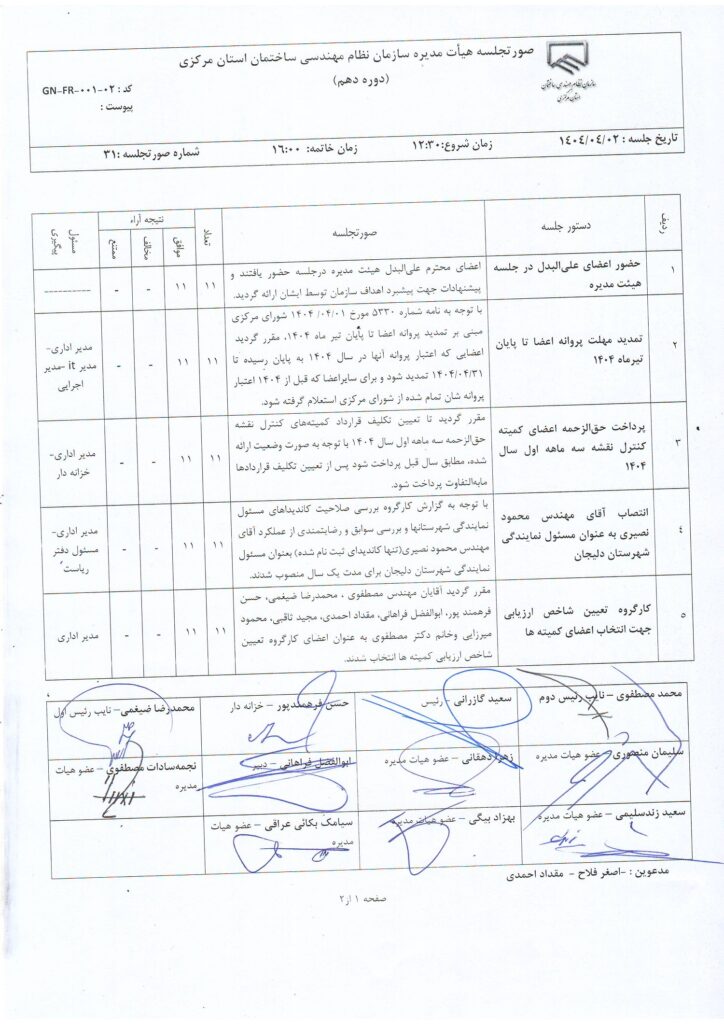 صورتجلسه هیأت مدیره سازمان نظام مهندسی ساختمان استان مرکزی
(دوره دهم)
سازمان نظام مهندسی ساختمان
استان مرکزی
کد : GN-FR-۰۰۱-۰۲
پیوست :
تاریخ جلسه : ۱۴۰۴/۰۴/۰۲
زمان شروع:۱۲:۳۰
زمان خاتمه: ۱۶:۰۰
شماره صورتجلسه :۳۱
ردیف
دستور جلسه
صورتجلسه
تعداد
نتیجه آراء
موافق
مخالف
ممتنع
مسئول
پیگیری
۱
حضور اعضای علی‌البدل در جلسه
هیئت مدیره
اعضای محترم علی‌البدل هیئت مدیره درجلسه حضور یافتند و
پیشنهادات جهت پیشبرد اهداف سازمان توسط ایشان ارائه گردید.
۱۱
۱۱
-
-
----------
۲
تمدید مهلت پروانه اعضا تا پایان
تیرماه ۱۴۰۴
با توجه به نامه شماره ۵۳۳۰ مورخ ۱۴۰۴/۰۴/۰۱ شورای مرکزی
مبنی بر تمدید پروانه اعضا تا پایان تیر ماه ۱۴۰۴، مقرر گردید
اعضایی که اعتبار پروانه آنها در سال ۱۴۰۴ به پایان رسیده تا
۱۴۰۴/۰۴/۳۱ تمدید شود و برای سایراعضا که قبل از ۱۴۰۴ اعتبار
پروانه شان تمام شده از شورای مرکزی استعلام گرفته شود.
۱۱
۱۱
-
-
مدیر اداری-
مدیر it -مدیر
اجرایی
۳
پرداخت حق‌الزحمه اعضای کمیته
کنترل نقشه سه ماهه اول سال
۱۴۰۴
مقرر گردید تا تعیین تکلیف قرارداد کمیته‌های کنترل نقشه
حق‌الزحمه سه ماهه اول سال ۱۴۰۴ با توجه به صورت وضعیت ارائه
شده، مطابق سال قبل پرداخت شود پس از تعیین تکلیف قراردادها
مابه‌التفاوت پرداخت شود.
۱۱
۱۱
-
-
مدیر اداری-
خزانه دار
۴
انتصاب آقای مهندس محمود
نصیری به عنوان مسئول نمایندگی
شهرستان دلیجان
با توجه به گزارش کارگروه بررسی صلاحیت کاندیداهای مسئول
نمایندگی شهرستانها و بررسی سوابق و رضایتمندی از عملکرد آقای
مهندس محمود نصیری(تنها کاندیدای ثبت نام شده) بعنوان مسئول
نمایندگی شهرستان دلیجان برای مدت یک سال منصوب شدند.
۱۱
۱۱
-
-
مدیر اداری-
مسئول دفتر
ریاست
۵
کارگروه تعیین شاخص ارزیابی
جهت انتخاب اعضای کمیته ها
مقرر گردید آقایان مهندس مصطفوی ، محمدرضا ضیغمی، حسن
فرهمند پور، ابوالفضل فراهانی، مقداد احمدی، مجید ثاقبی، محمود
میرزایی وخانم دکتر مصطفوی به عنوان اعضای کارگروه تعیین
شاخص ارزیابی کمیته ها انتخاب شدند.
۱۱
۱۱
-
-
مدیر اداری
محمد مصطفوی – نایب رئیس دوم
سعید گازرانی – رئیس
حسن فرهمندپور – خزانه دار
محمدرضا ضیغمی – نایب رئیس اول
سلیمان منصوری – عضو هیات مدیره
زهرا دهقانی – عضو هیات مدیره
ابوالفضل فراهانی – دبیر
نجمه‌سادات مصطفوی – عضو هیات
مدیره
سعید زندسلیمی – عضو هیات مدیره
بهزاد بیگی – عضو هیات مدیره
سیامک بکائی عراقی – عضو هیات
مدیره
مدعوین : -اصغر فلاح - مقداد احمدی
صفحه ۱ از۲